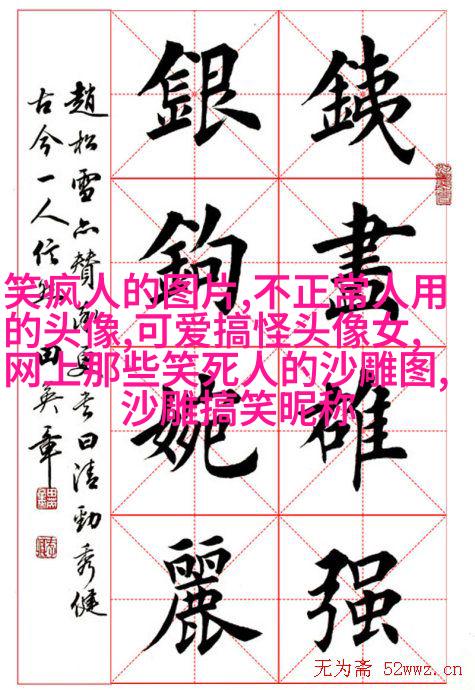 銕畫雄强
銀鉤婉麗
趙松雪亦贊 書者曰清勁秀健
古今一人信 田英章
笑疯人的图片,不正常人用
的头像,可爱搞怪头像女,
网上那些笑死人的沙雕图,
沙雕搞笑昵称
无为斋 52wwz.cn